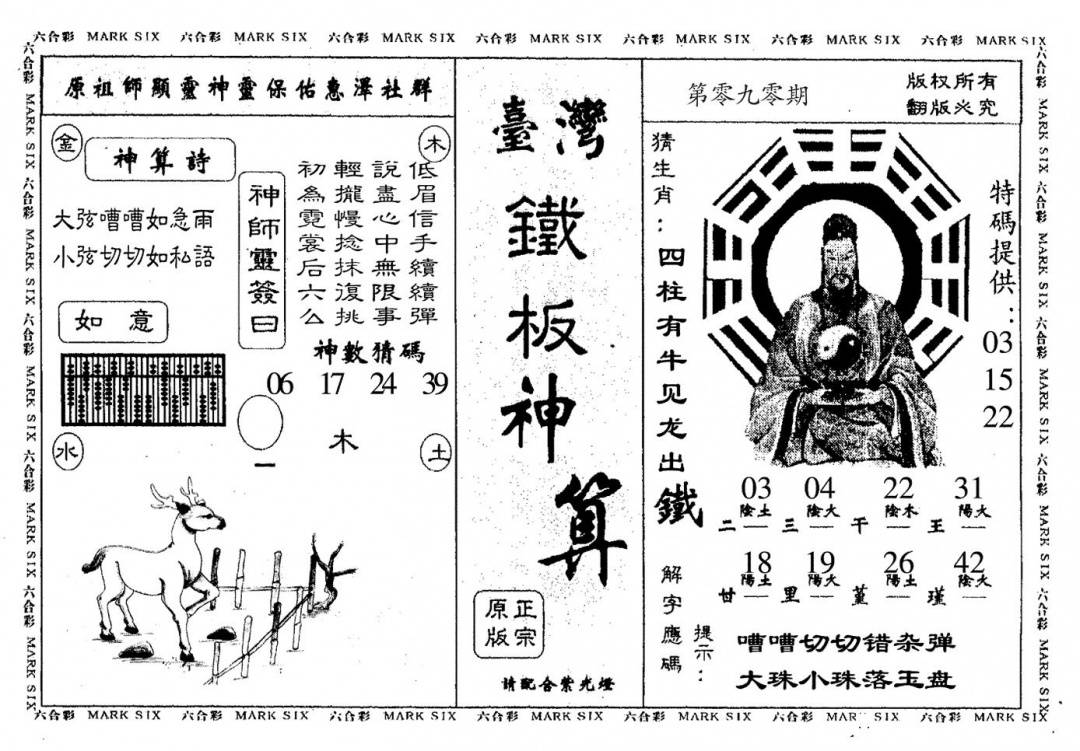 六合彩 MARK SIX 六合彩 MARK SIX 六合彩 MARK SIX 六合彩 MARK SIX 六合彩 MARK SIX 六合彩 MARK SIX 六合彩 MARK SIX
原祖師顯靈神靈保佑惠澤社群
金
木
神算詩
大弦嘈嘈如急雨
小弦切切如私語
如意
神師靈簽曰
低眉信手續續彈
說盡心中無限事
輕攏慢捻抹復挑
初為霓裳后六么
神數猜碼
06 17 24 39
木
一
水
土
臺灣
鐵板神算
正宗
原版
請配合紫光燈
第零九零期
版权所有
翻版必究
猜生肖：四柱有牛见龙出鐵
特碼提供：
03
15
22
03 04 22 31
陰土 陰火 陰木 陽火
二 三 干 王
18 19 26 42
陽土 陽火 陽土 陰火
廿 里 堇 瑾
解字應碼
提示：
嘈嘈切切错杂弹
大珠小珠落玉盘
六合彩 MARK SIX 六合彩 MARK SIX 六合彩 MARK SIX 六合彩 MARK SIX 六合彩 MARK SIX
六合彩 MARK SIX 六合彩 MARK SIX 六合彩 MARK SIX 六合彩 MARK SIX 六合彩 MARK SIX
六合彩 MARK SIX 六合彩 MARK SIX 六合彩 MARK SIX 六合彩 MARK SIX 六合彩 MARK SIX 六合彩 MARK SIX 六合彩 MARK SIX